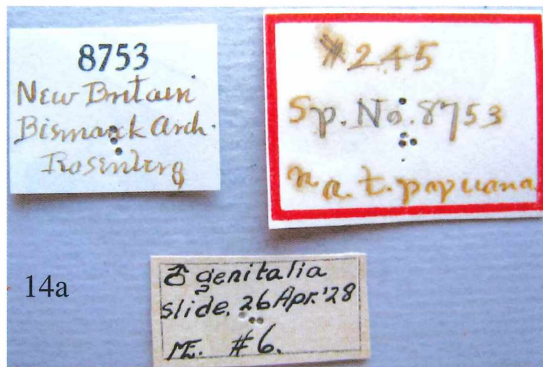 8753
New Britain
Bismarck Arch.
Rosenberg
#245
Sp. No. 8753
n a. t. papuana
♂ genitalia
slide, 26 Apr. '28
#6.
14a